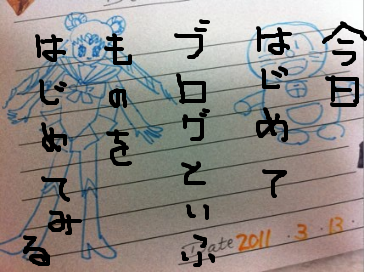 今日
はじめて
ブログといふ
ものを
はじめてみる
Date 2011.3.13.